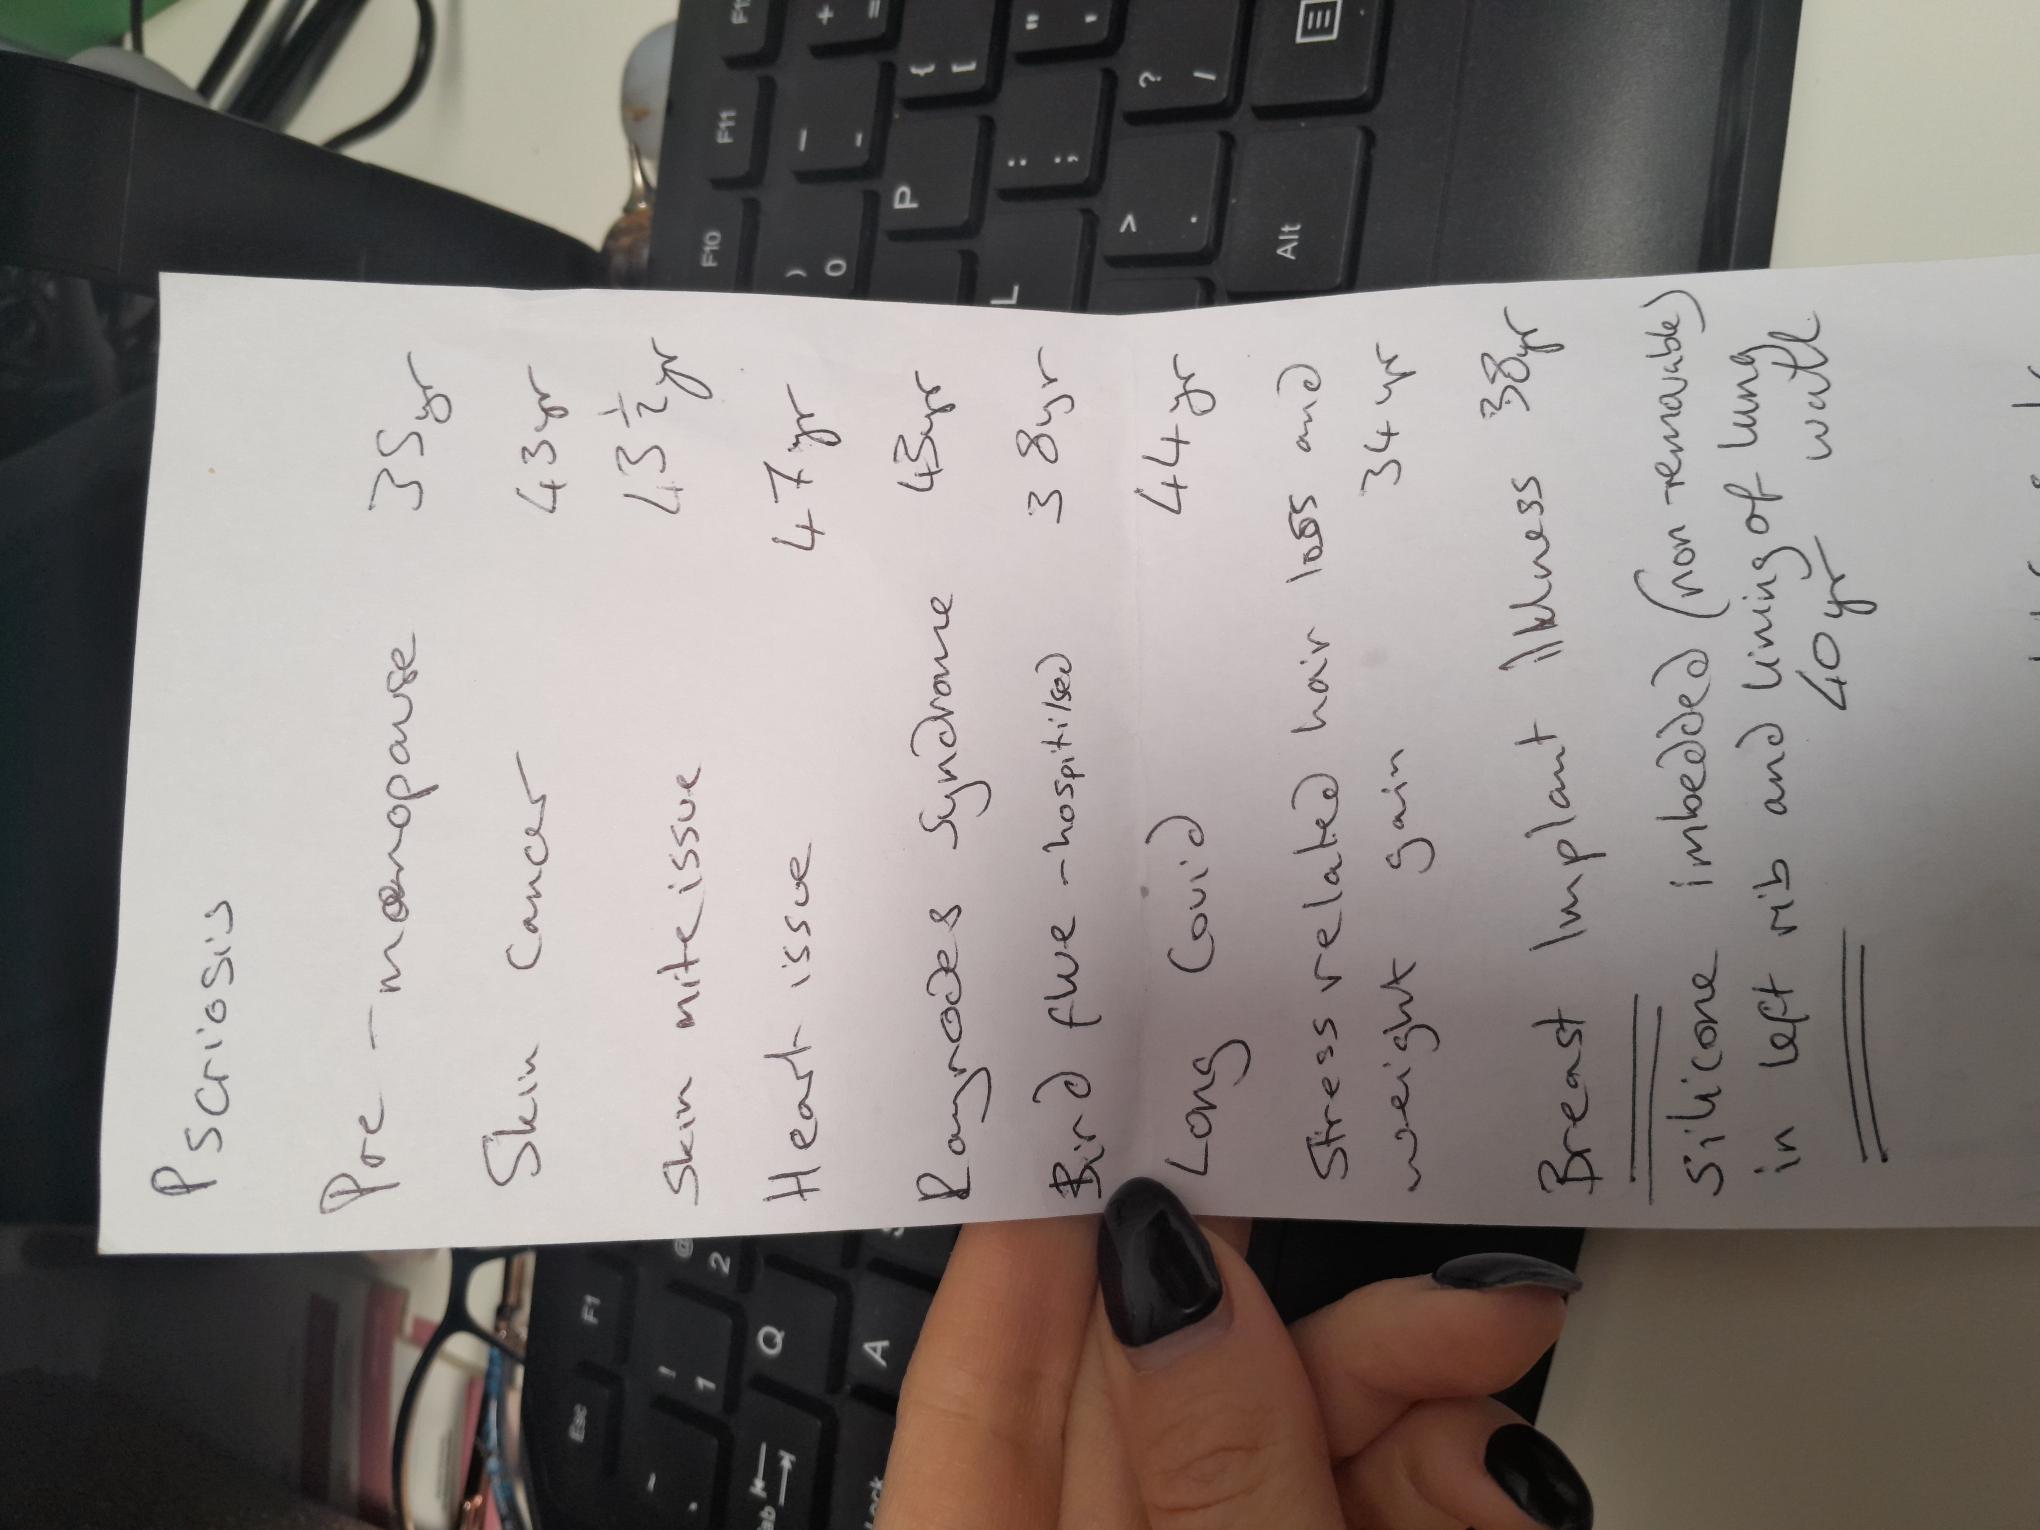 Pscriosis
Pre - manopause 35yr
Skin Cancer 43yr
Skin mite issue 43 1/2 yr
Heart issue 47yr
Raynodes Syndrome 43yr
Bird flue - hospitilsed 38yr
Long Covid 44yr
Stress related hair loss and
weight gain 34yr
Breast Implant Illness 38yr
Silicone imbedded (non-removable)
in left rib and lining of lung
40yr wall
F10
F11
) 0
_ -
+ =
P
{ [
L
: ;
" '
> .
? /
Alt
Esc
F1
! 1
@ 2
Q
A